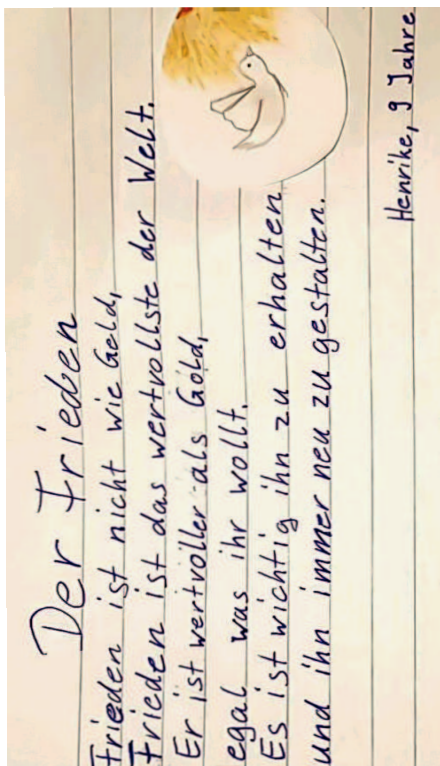 Der Frieden
Frieden ist nicht wie Geld,
Frieden ist das wertvollste der Welt.
Er ist wertvoller als Gold,
egal was ihr wollt.
Es ist wichtig ihn zu erhalten
und ihn immer neu zu gestalten.
Henrike, 9 Jahre